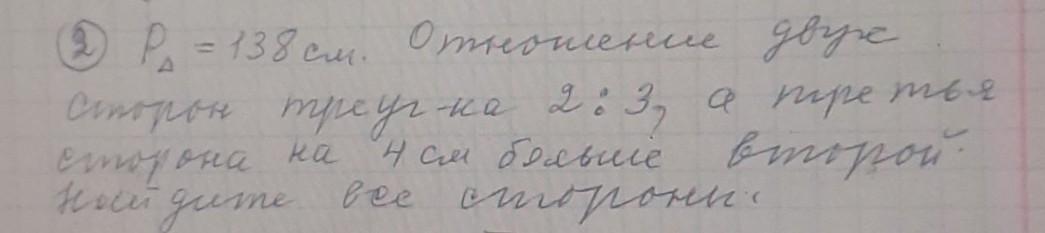 ② P△ = 138 см. Отношение двух
сторон треуг-ка 2:3, а третья
сторона на 4 см больше второй.
Найдите все стороны.